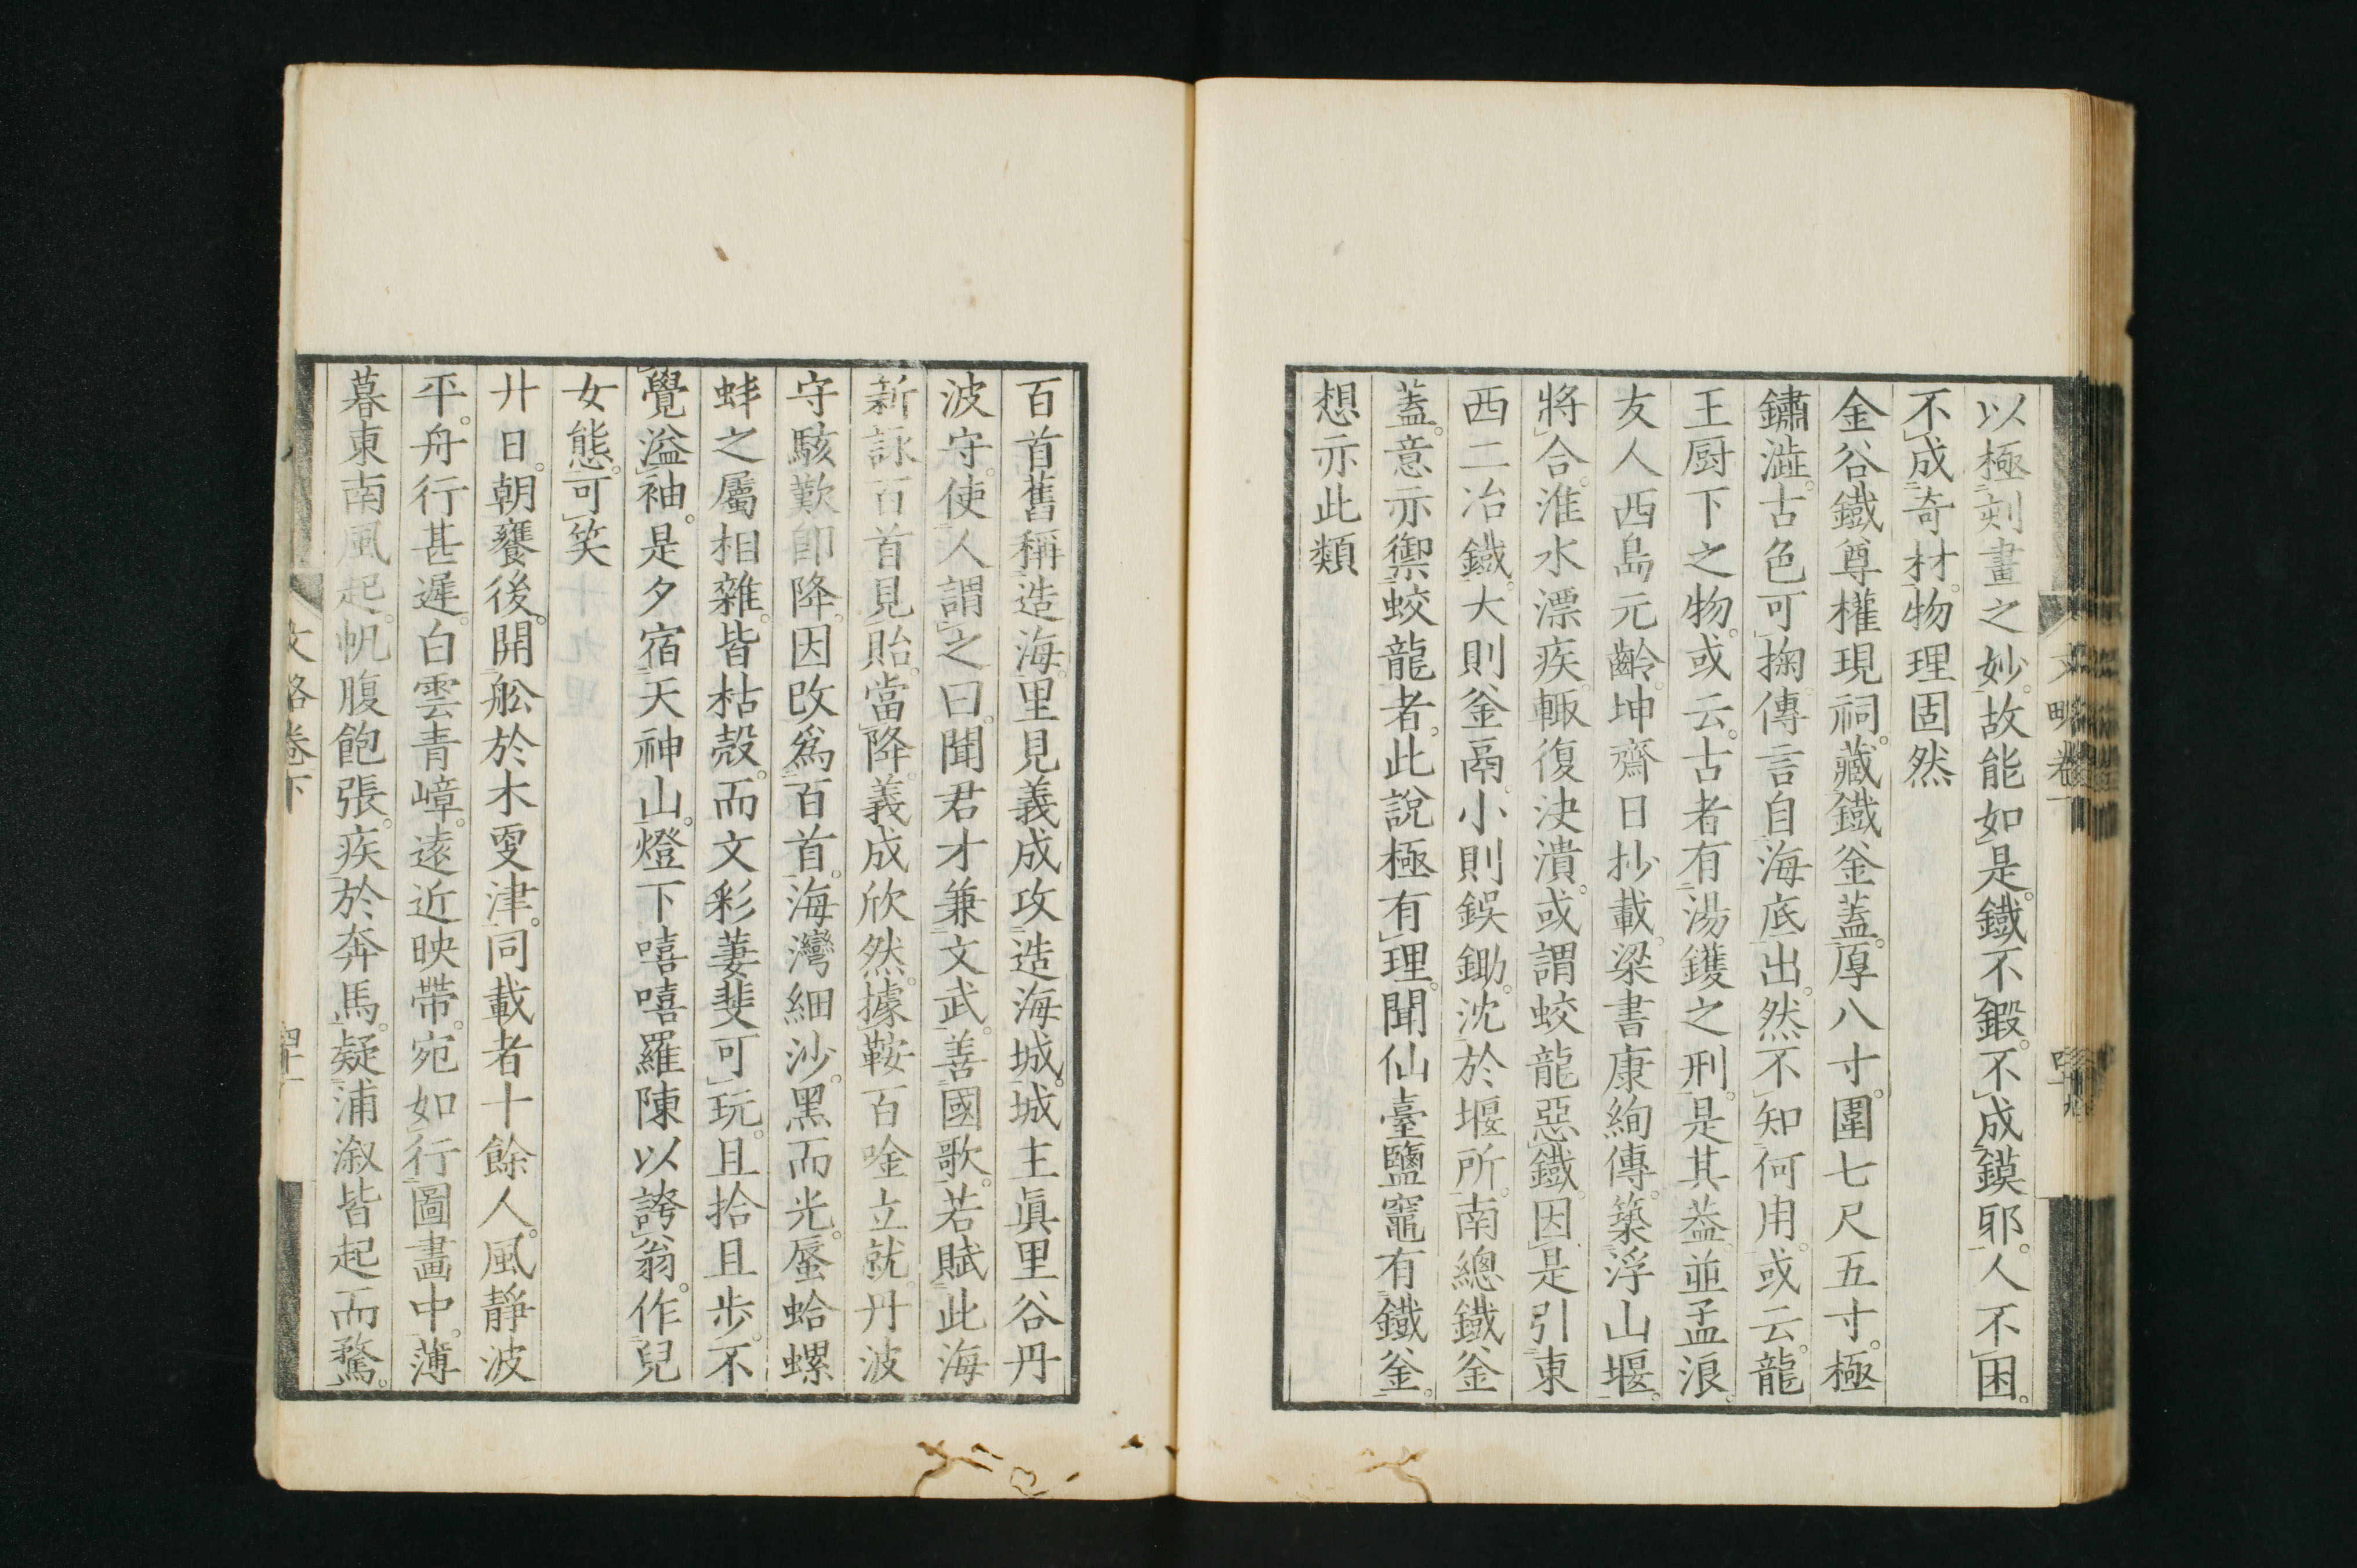 以極刻畫之妙。故能如是。鐵不鍛。不成鏌耶。人不困。
不成奇材。物理固然
金谷鐵尊權現祠。藏鐵釜蓋。厚八寸。圍七尺五寸。極
鏽澁。古色可掬。傳言自海底出。然不知何用。或云。龍
王厨下之物。或云。古者有湯鑊之刑。是其葢。並孟浪。
友人西島元齡。坤齋日抄載。梁書康絢傳。築浮山堰。
將合。淮水漂疾。輙復決潰。或謂蛟龍惡鐵。因是引東
西二冶鐵。大則釜鬲。小則鋘鋤。沈於堰所。南總鐵釜
蓋。意亦禦蛟龍者。此說極有理。聞仙臺鹽竈有鐵釜。
想亦此類
文略卷下
百首舊稱造海。里見義成攻造海城。城主眞里谷丹
波守。使人謂之曰。聞君才兼文武。善國歌。若賦此海
新詠百首見貽。當降。義成欣然。據鞍百唫立就。丹波
守駭歎卽降。因改爲百首。海灣細沙。黑而光。蜃蛤螺
蚌之屬相雜。皆枯殼。而文彩萋斐可玩。且拾且步。不
覺溢袖。是夕宿天神山。燈下嘻嘻羅陳以誇翁。作兒
女態。可笑
廾日。朝饔後。開舩於木叓津。同載者十餘人。風靜波
平。舟行甚遲。白雲青嶂。遠近映帶。宛如行圖畫中。薄
暮東南風起。帆腹飽張。疾於奔馬。疑浦漵皆起而騖。
文略卷下